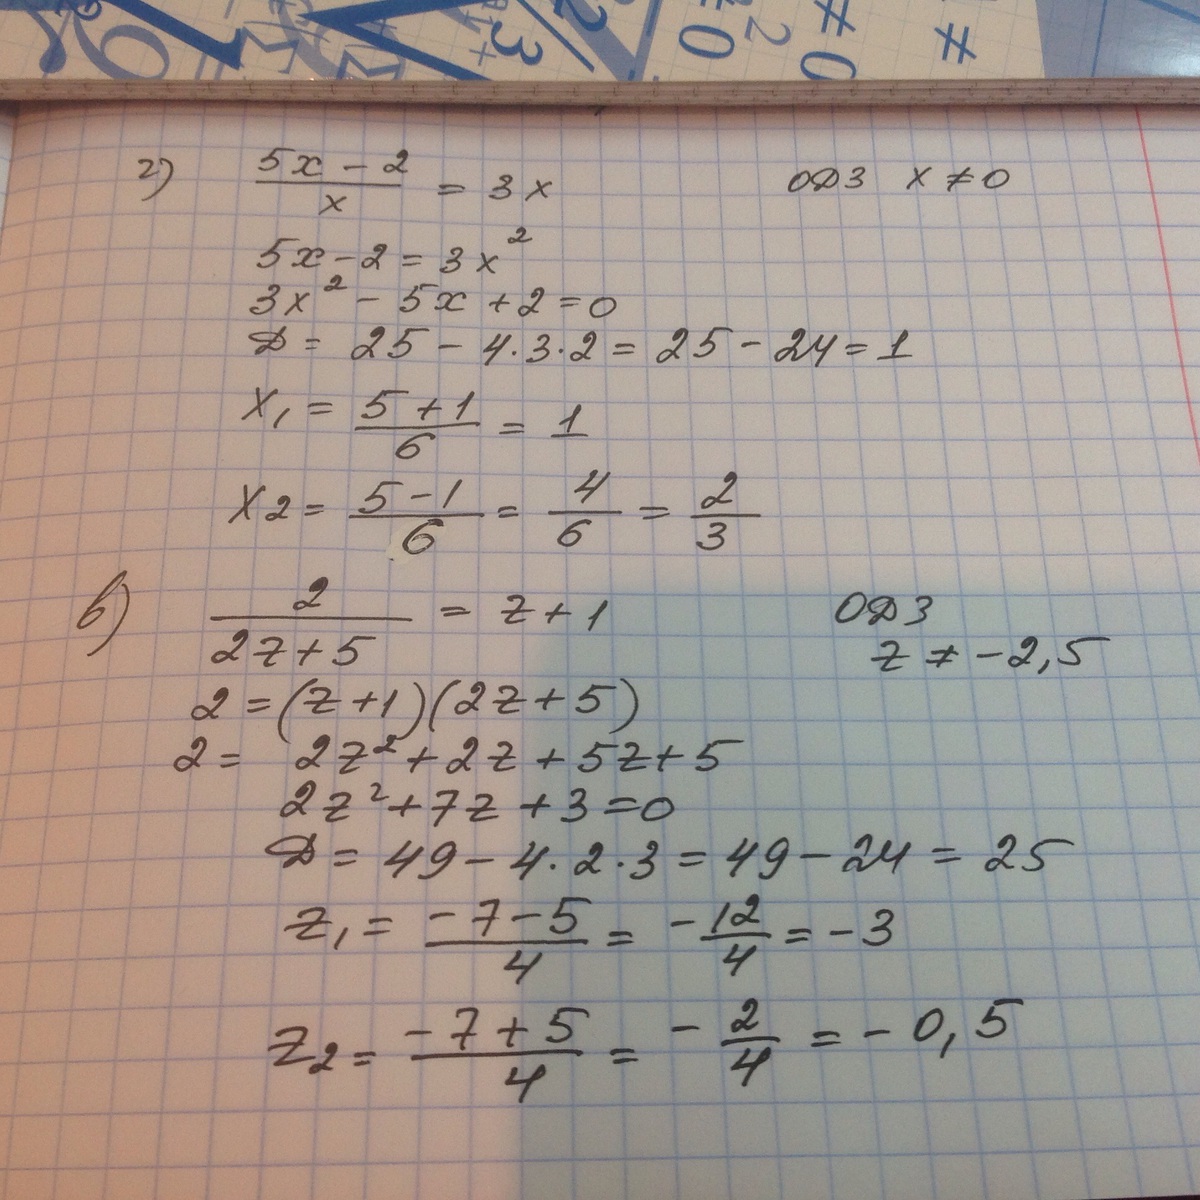 г) (5x - 2)/x = 3x ОДЗ x ≠ 0
5x - 2 = 3x²
3x² - 5x + 2 = 0
Д = 25 - 4·3·2 = 25 - 24 = 1
X₁ = (5 + 1)/6 = 1
X2 = (5 - 1)/6 = 4/6 = 2/3
в) 2/(2z + 5) = z + 1 ОДЗ
z ≠ -2,5
2 = (z + 1)(2z + 5)
2 = 2z² + 2z + 5z + 5
2z² + 7z + 3 = 0
Д = 49 - 4·2·3 = 49 - 24 = 25
z₁ = (-7 - 5)/4 = -12/4 = -3
z₂ = (-7 + 5)/4 = -2/4 = -0,5